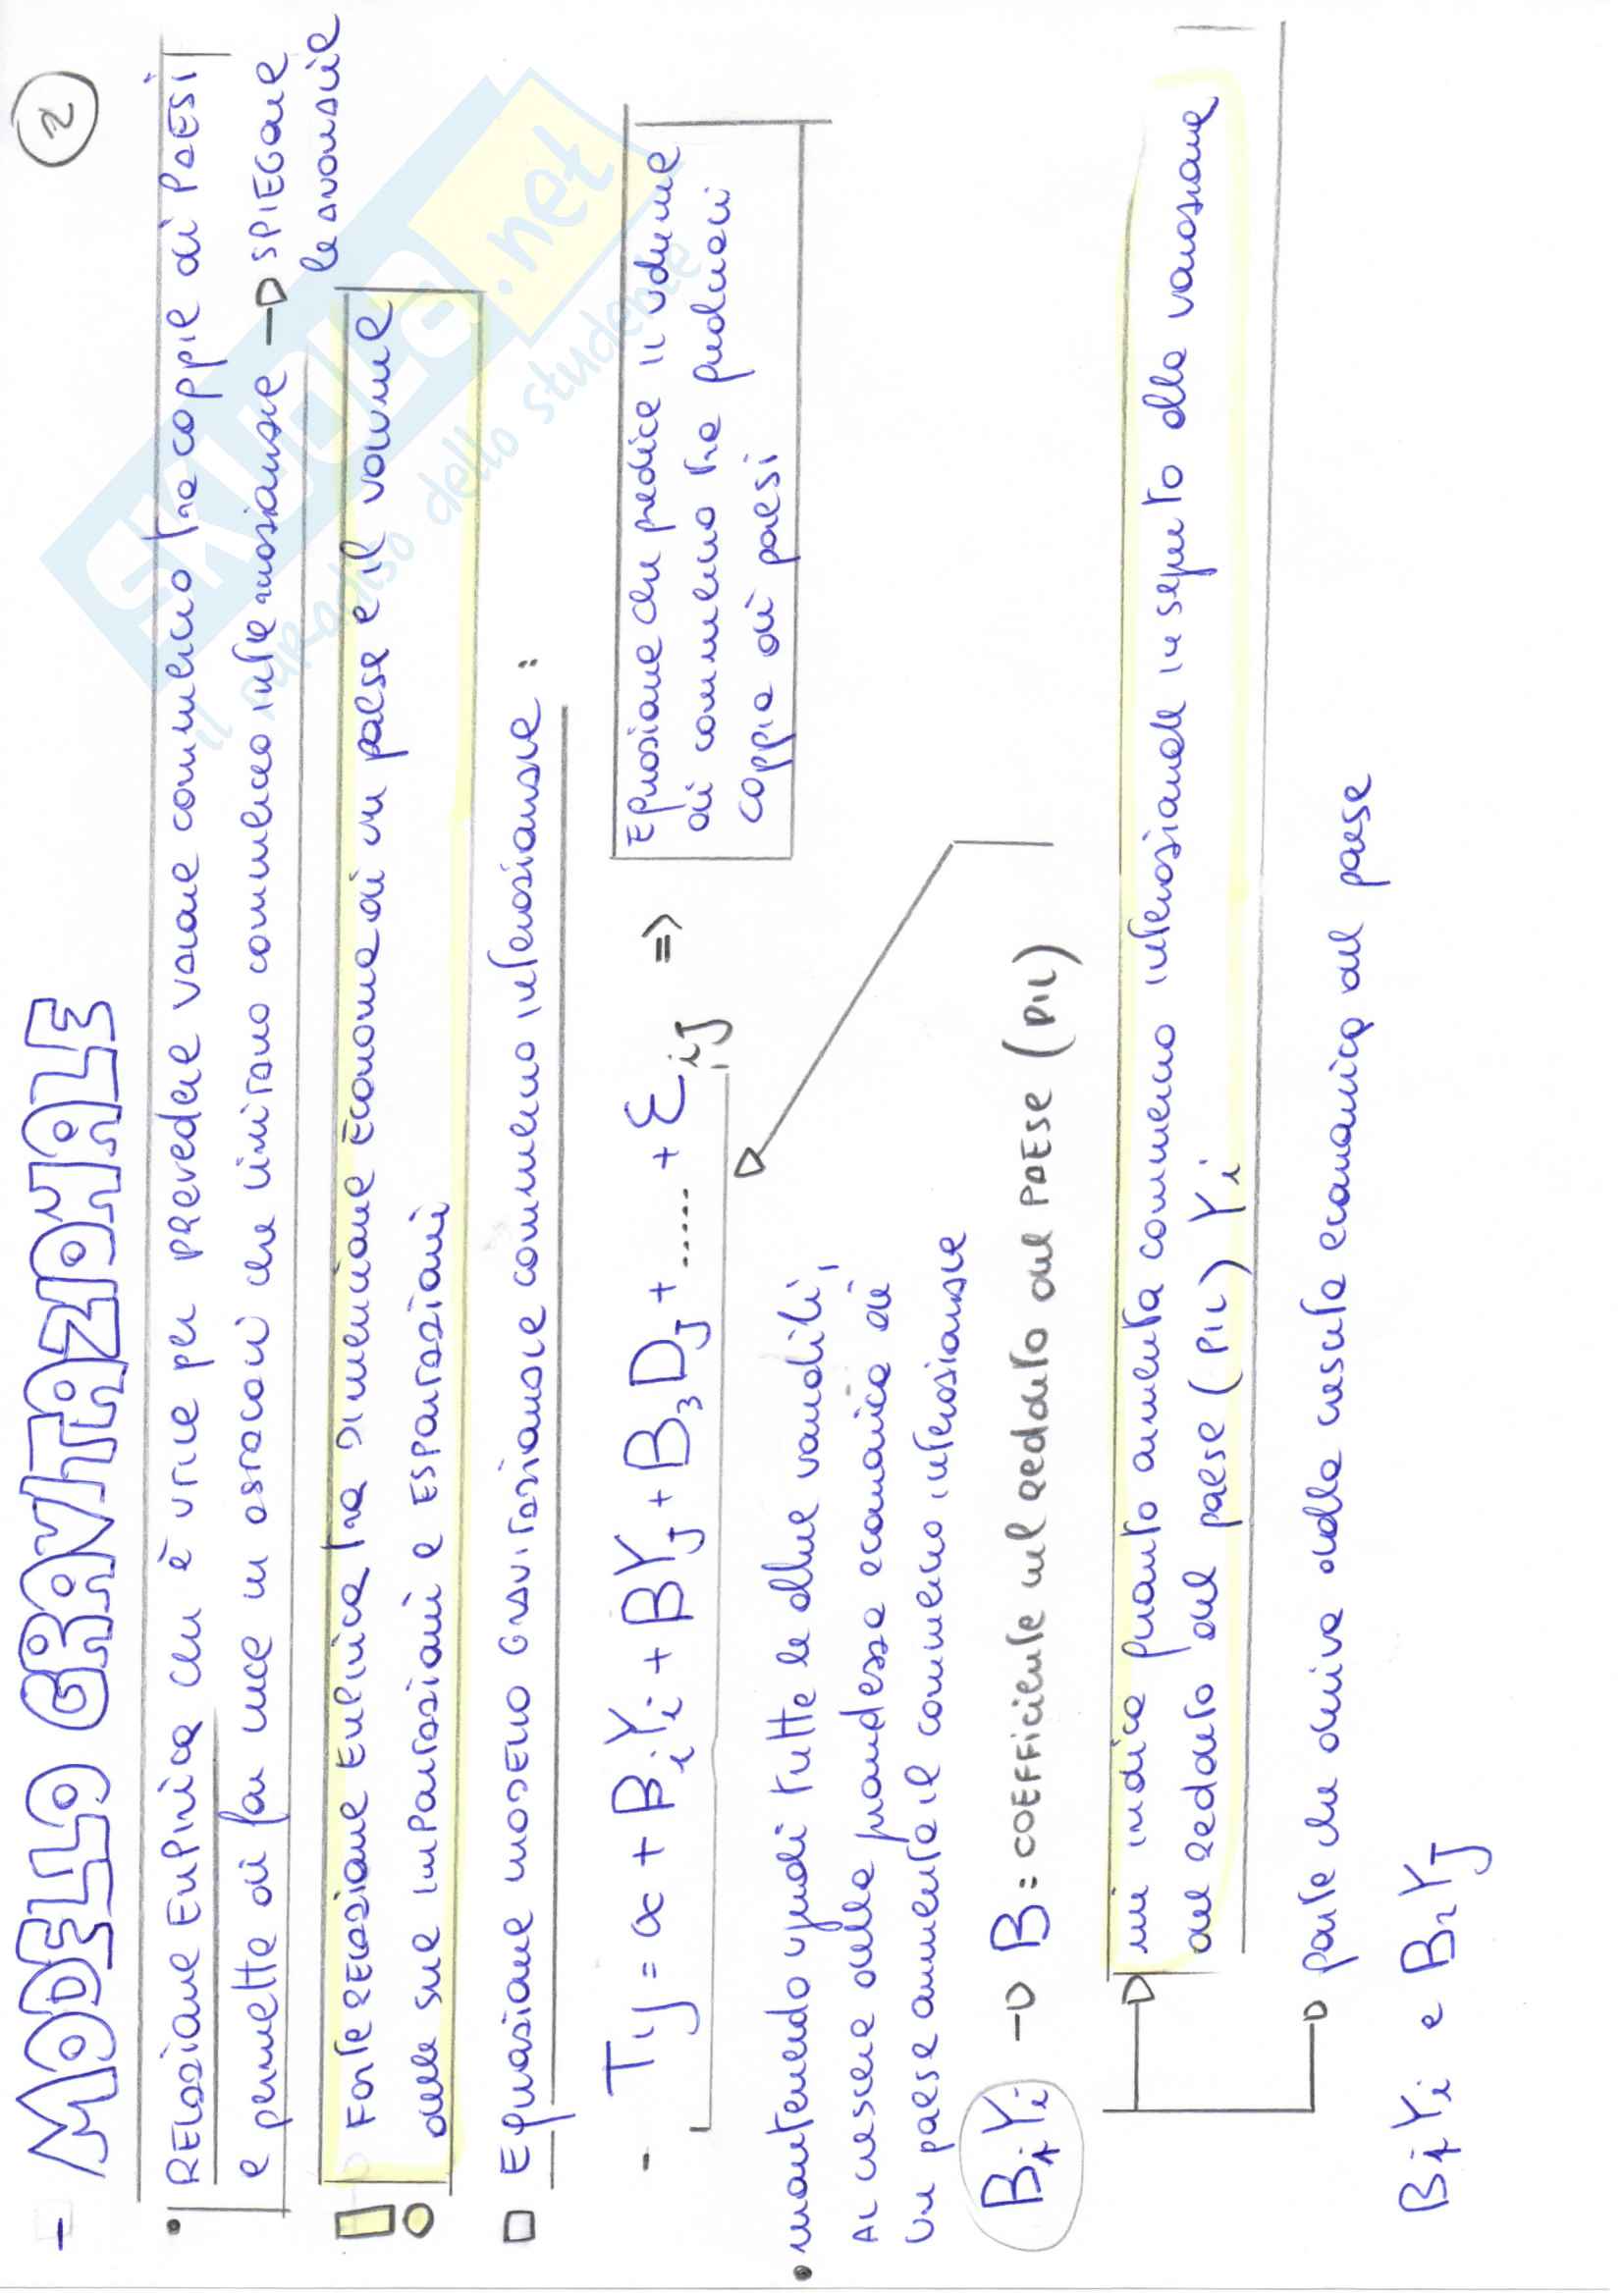 2
- MODELLO GRAVITAZIONALE
• RELAZIONE EMPIRICA che è utile per prevedere valore commercio tra coppie di PAESI
e permette di far luce su ostacoli che limitano commercio internazionale → SPIEGARE
le anomalie
Forte RELAZIONE EMPIRICA tra DIMENSIONE Economia di un paese e il volume
delle sue importazioni e ESPORTAZIONI
Equazione MODELLO GRAVITAZIONALE commercio internazionale :
- Tij = α + BiYi + BYJ + B3DJ + ..... + Eij ⇒
Equazione che predice il volume
di commercio tra qualsiasi
coppia di paesi
• mantenendo quindi tutte le altre variabili,
Al crescere della grandezza economica di
Un paese aumenterà il commercio internazionale
B1Yi → B = COEFFICIENTE sul reddito del PAESE (PIL)
mi indica quanto aumenta commercio internazionale in seguito alla variazione
del reddito del paese (PIL) Yi
parte che deriva dalla crescita economica del paese
B1Yi e B2YJ
SKUOLA.net
il paradiso dello studente